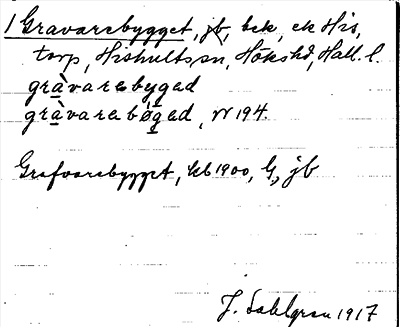 1 Gravarebygget, jb, bek, ek His,
torp, Hishults, sn, Hökshd, Hall. l.
gràvarabygad
gràvarabøgad, W 194.
Grafvarebygget, kb 1900, G, jb
J. Sahlgren 1917